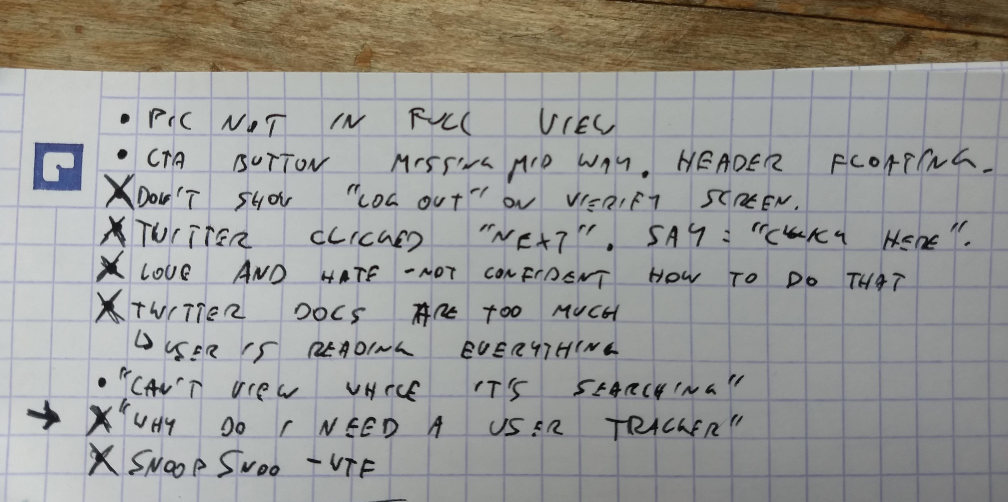 • PIC NOT IN FULL VIEW
• CTA BUTTON MISSING MID WAY. HEADER FLOATING.
X DON'T SHOW "LOG OUT" ON VIERIFY SCREEN.
X TWITTER CLICKED "NEXT". SAY: "CLICK HERE".
X LOVE AND HATE - NOT CONFIDENT HOW TO DO THAT
X TWITTER DOCS ARE TOO MUCH
↳ USER IS READING EVERYTHING
• "CAN'T VIEW WHILE IT'S SEARCHING"
→ X "WHY DO I NEED A USER TRACKER"
X SNOOPSNOO - WTF